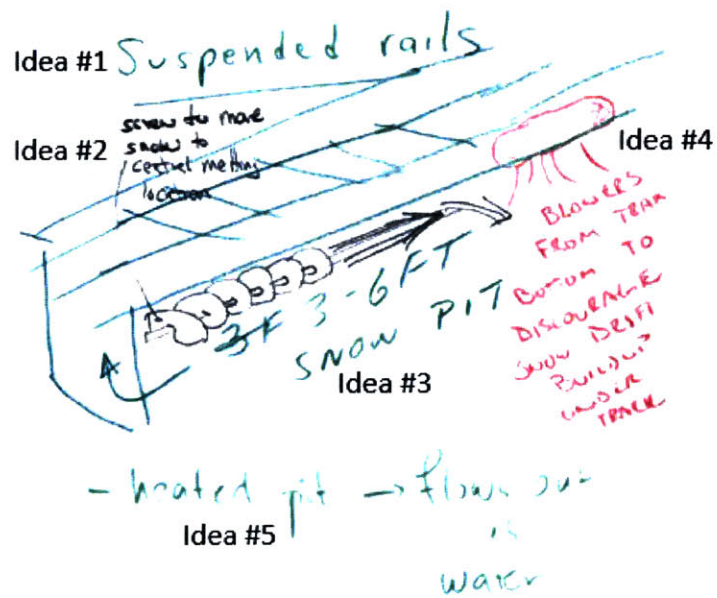 Idea #1 Suspended rails
Idea #2
screw to move
snow to
central melting
location
Idea #4
BLOWERS
FROM TRAK
BOTTOM TO
DISCOURAGE
SNOW DRIFT
BUILDUP
UNDER
TRACK
3-6 FT
SNOW PIT
Idea #3
- heated pit → flows out
is
water
Idea #5